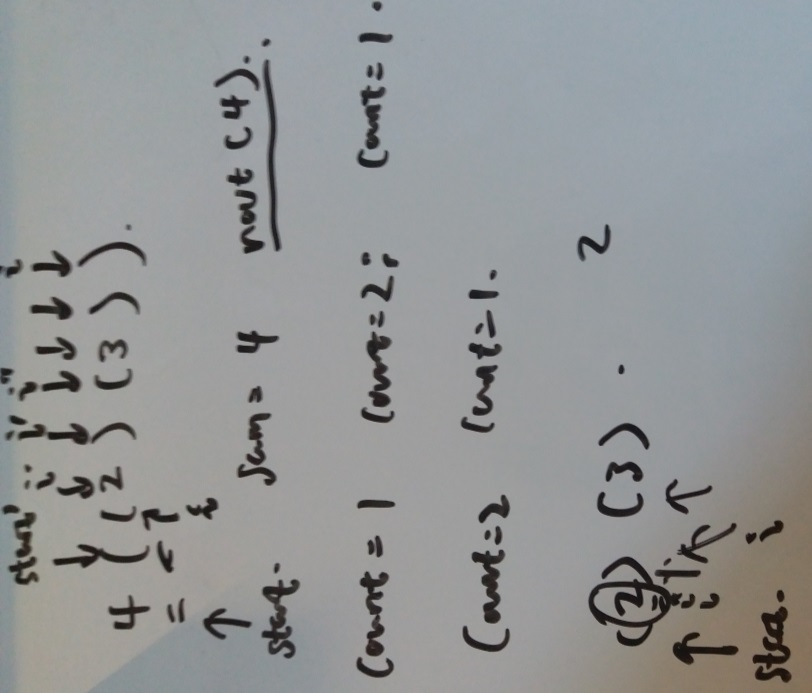 start i i i i
4 ( (2) (3) ).
= i
start. sum = 4 nout (4).
Count = 1 Count = 2; Count = 1.
Count = 2 Count = 1.
(2) (3) . 2
i i
start. i